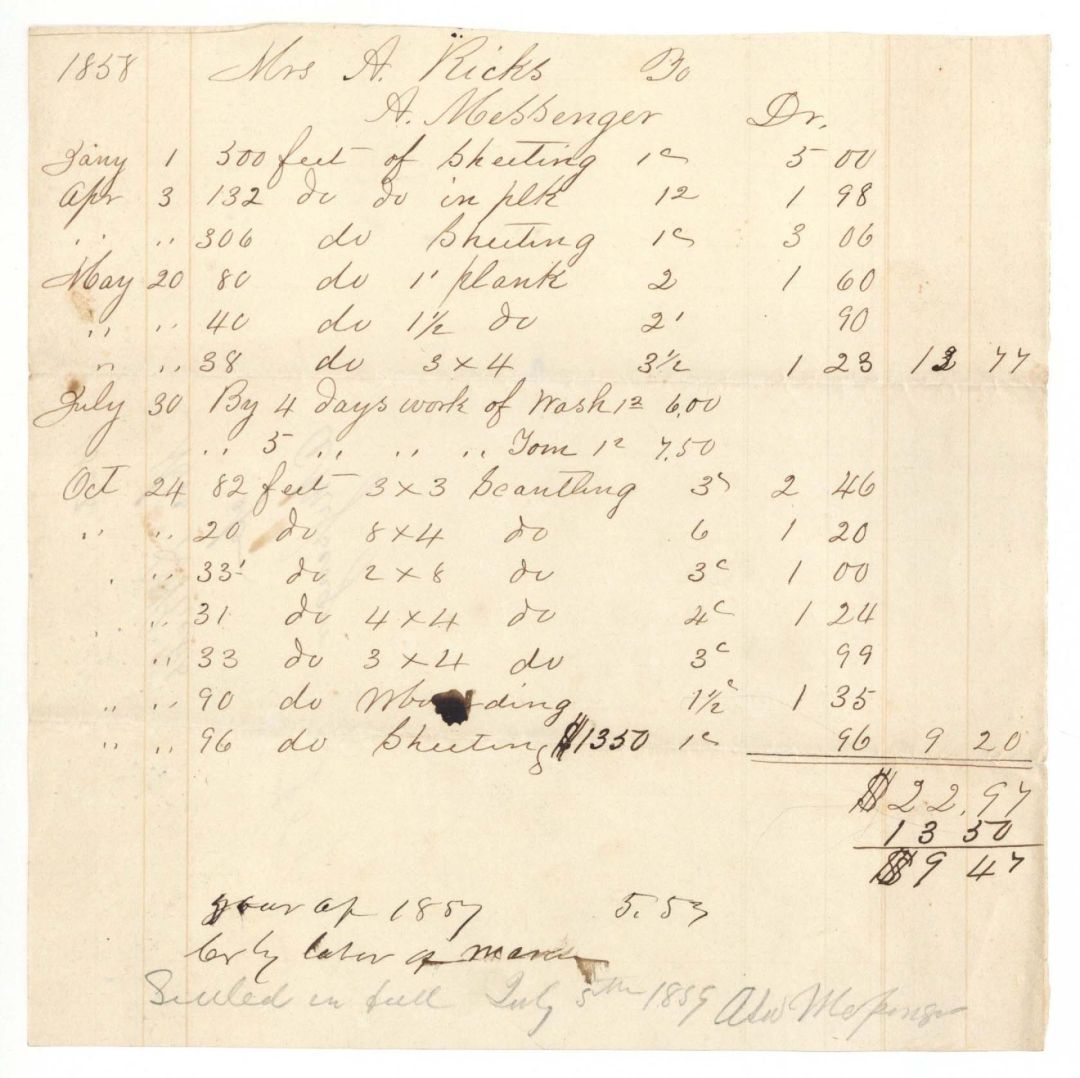 1858 Mrs A. Ricks Bo
A. Messenger Dr.
Jany 1 500 feet of Sheeting 1c 5 00
Apr 3 132 do do in plk 12 1 98
" " 306 do Sheeting 1c 3 06
May 20 80 do 1' plank 2 1 60
" " 40 do 1½ do 2' 90
" " 38 do 3 x 4 3½ 1 23 13 77
July 30 By 4 days work of Wash 12 6.00
" 5 " " " Tom 12 7.50
Oct 24 82 feet 3 x 3 Scantling 3c 2 46
" " 20 do 8 x 4 do 6 1 20
" " 33' do 2 x 8 do 3c 1 00
" " 31 do 4 x 4 do 4c 1 24
" " 33 do 3 x 4 do 3c 99
" " 90 do 1½c 1 35
" " 96 do Sheeting $1350 1c 96 9 20
$22.97
13 50
$9 47
year of 1857 5.53
Cr by labor of
Settled in full July 5th 1859 Messenger